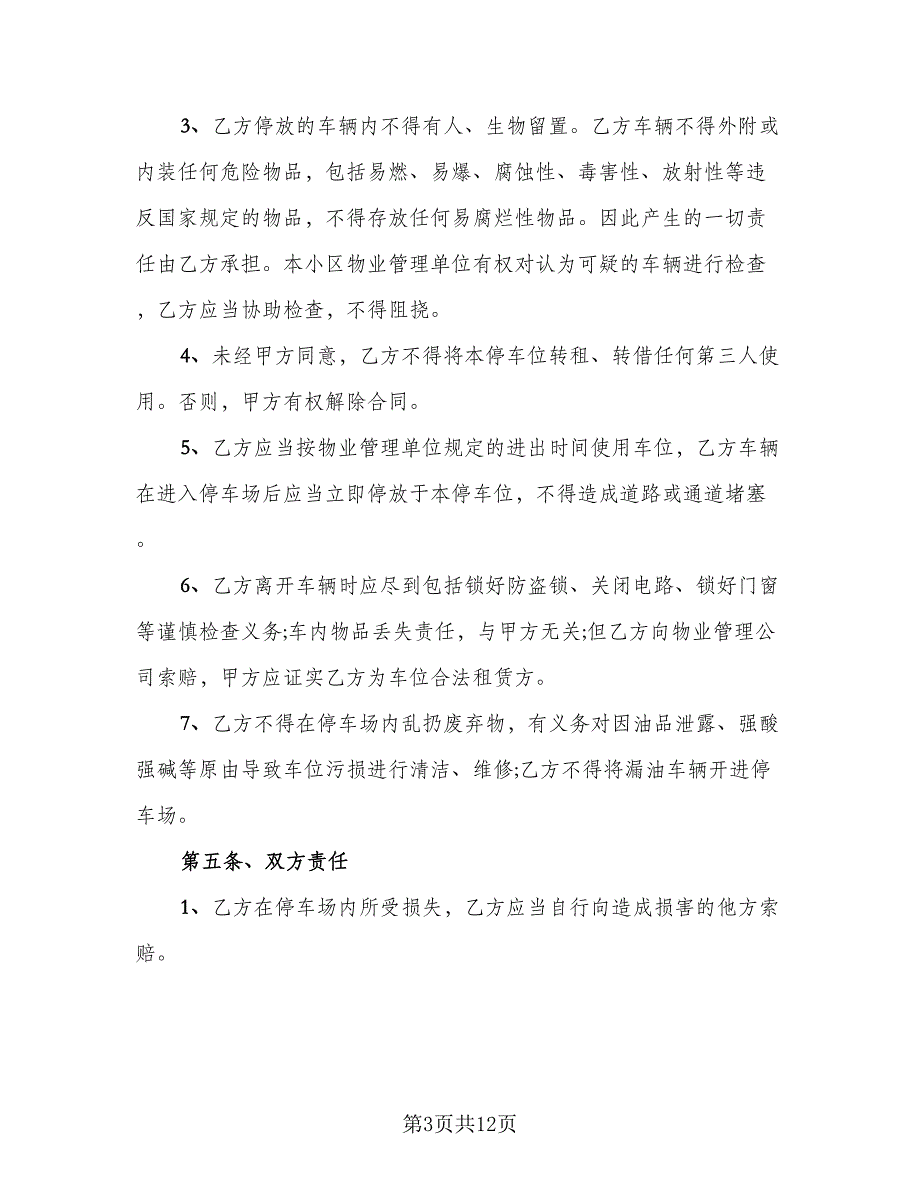 3、乙方停放的车辆内不得有人、生物留置。乙方车辆不得外附或
内装任何危险物品，包括易燃、易爆、腐蚀性、毒害性、放射性等违
反国家规定的物品，不得存放任何易腐烂性物品。因此产生的一切责
任由乙方承担。本小区物业管理单位有权对认为可疑的车辆进行检查
，乙方应当协助检查，不得阻挠。
4、未经甲方同意，乙方不得将本停车位转租、转借任何第三人使
用。否则，甲方有权解除合同。
5、乙方应当按物业管理单位规定的进出时间使用车位，乙方车辆
在进入停车场后应当立即停放于本停车位，不得造成道路或通道堵塞
。
6、乙方离开车辆时应尽到包括锁好防盗锁、关闭电路、锁好门窗
等谨慎检查义务;车内物品丢失责任，与甲方无关;但乙方向物业管理公
司索赔，甲方应证实乙方为车位合法租赁方。
7、乙方不得在停车场内乱扔废弃物，有义务对因油品泄露、强酸
强碱等原由导致车位污损进行清洁、维修;乙方不得将漏油车辆开进停
车场。
第五条、双方责任
1、乙方在停车场内所受损失，乙方应当自行向造成损害的他方索
赔。
第3页共12页